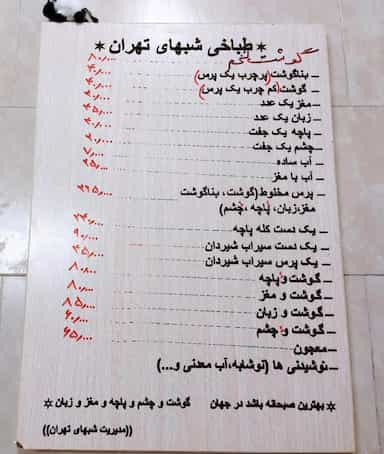 ✶ طباخی شبهای تهران ✶
گوشت لخم ۸۰,۰۰۰
– بناگوشت(پرچرب یک پرس)
– گوشت(کم چرب یک پرس)
– مغز یک عدد
– زبان یک عدد ۴۵,۰۰۰
– پاچه یک جفت
– چشم یک جفت
– آب ساده ۷,۰۰۰
– آب با مغز
– پرس مخلوط(گوشت، بناگوشت
مغز،زبان، پاچه ،چشم)
– یک دست کله پاچه
– یک دست سیراب شیردان ۹۰,۰۰۰
– یک پرس سیراب شیردان ۴۵,۰۰۰
– گوشت وپاچه ۸۰,۰۰۰
– گوشت و مغز ۸۰,۰۰۰
– گوشت و زبان ۸۵,۰۰۰
– گوشت و چشم ۶۰,۰۰۰
– معجون ۶۵,۰۰۰
– نوشیدنی ها (نوشابه،آب معدنی و...)
✶ بهترین صبحانه باشد در جهان گوشت و چشم و پاچه و مغز و زبان ✶
((مدیریت شبهای تهران))